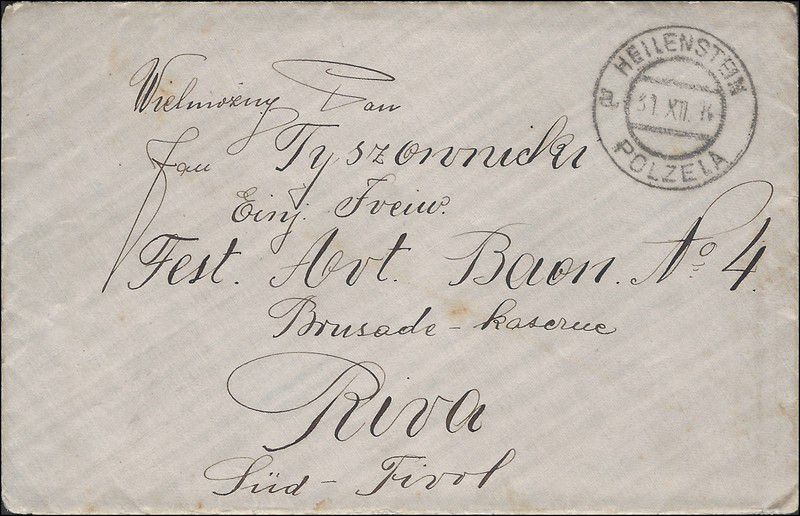 HEILENSTEIN
a
31. XII.
POLZELA
Wielmożny Pan
Jan Tyszownicki
Einj. Freiw.
Fest. Art. Baon. No 4.
Brusade-kaserne
Riva
Süd-Tirol